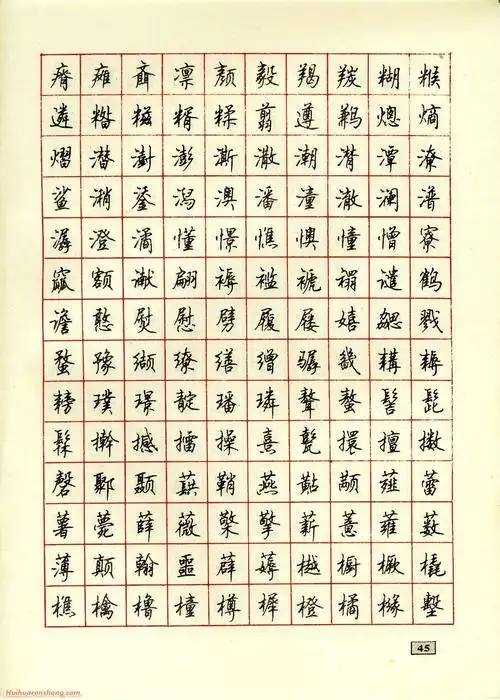 瘠瘫齑凛颜毅羯羰糊糇
遴糌糍糈糅翦遵鹣熜熵
熠潜澍澎澌潵潮潸潭潦
鲨潲鋈潟澳潘潼澈澜潽
潺澄潏懂憬憔懊憧憎寮
窳额谳翩褥褴褫褟谴鹤
谵憨熨慰劈履屦嬉勰戮
蝥豫缬缭缮缯骣畿耩耨
耪璞璟靛璠璘聱螯髻髭
髹擀撼擂操熹甏擐擅擞
磬鄹颞蕻鞘燕黇颟薤蕾
薯薨薛薇檠擎薪薏蕹薮
薄颠翰噩薜薅樾橱橛橇
樵檎橹橦樽樨橙橘橼墼
45
Huihuarensheng.com